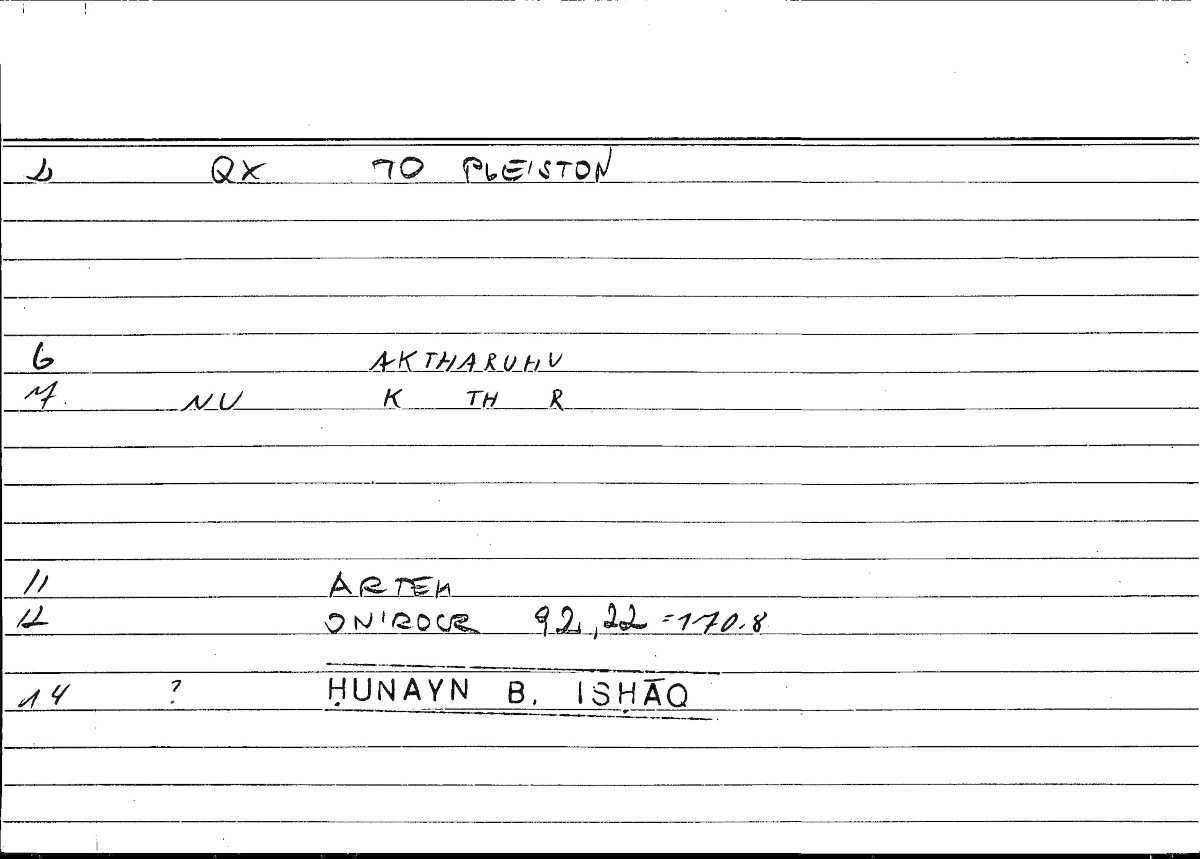 1 QX TO PLEISTON
6 AKTHARUHU
7. NU K TH R
11 ARTEM
12 ONIROCR 92,22 =170.8
14 ? ḤUNAYN B. ISḤĀQ